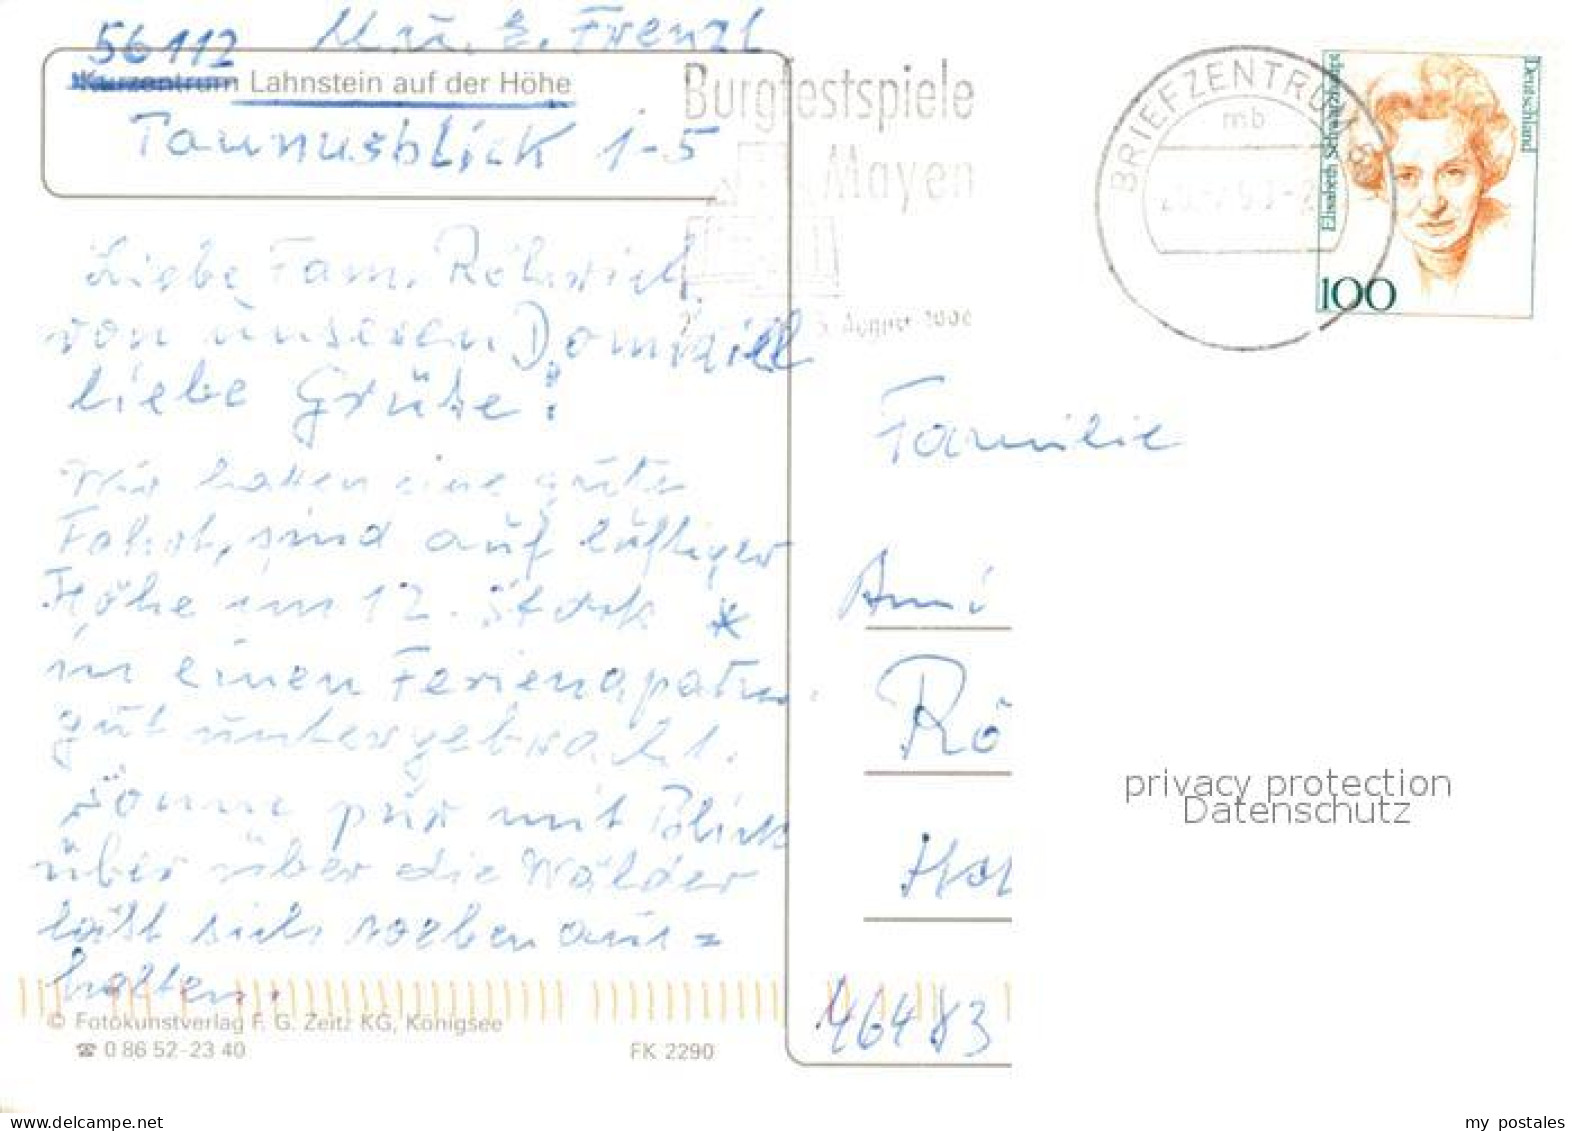 M. u. E. Frenzl
56112
Kurzentrum Lahnstein auf der Höhe
Taunusblick 1-5
Burgfestspiele
Mayen
August
BRIEFZENTRUM 56
mb
Deutschland
Elisabeth Schwarzhaupt
100
Liebe Fam. Röhrich
von unseren Domizill
liebe Grüße!
Wir hatten eine gute
Fahrt, sind auf luftiger
Höhe im 12. Stock *
in einen Ferienapatm.
gut untergebracht.
Sonne pur mit Blick
über über die Wälder
läßt sich sorben aus=
halten.
Familie
Rö
46483
privacy protection
Datenschutz
© Fotokunstverlag F. G. Zeitz KG, Königsee
☎ 0 86 52-23 40
FK 2290
my postales
www.delcampe.net